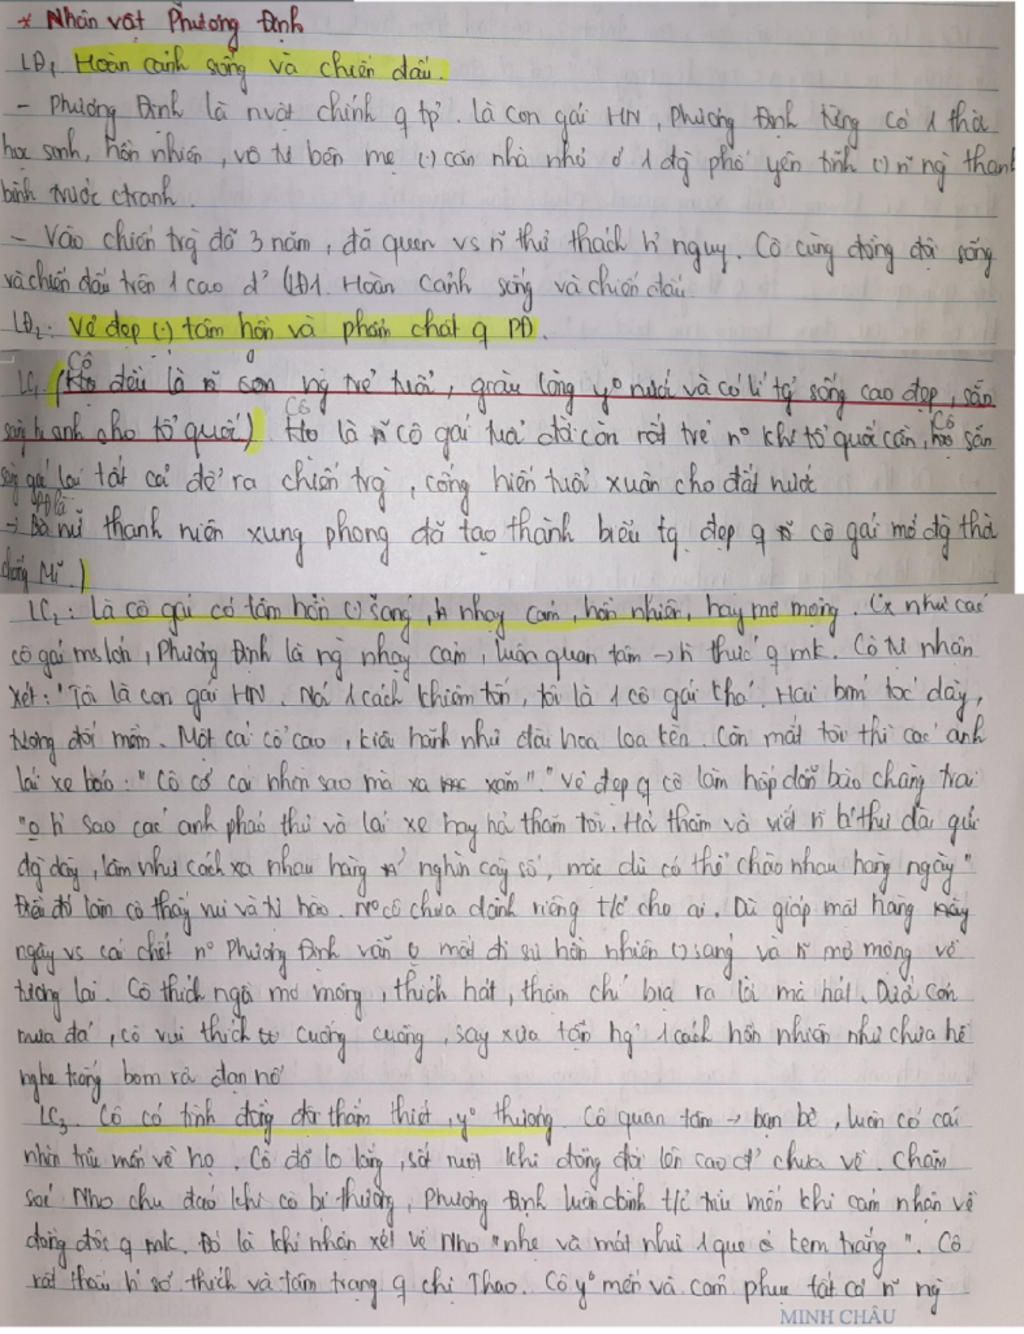 * Nhân vật Phương Định
LĐ1 Hoàn cảnh sống và chiến đấu.
- Phương Định là nvật chính q tp'. là con gái HN, Phương Định từng có 1 thời
học sinh, hồn nhiên, vô tư bên mẹ (.) căn nhà nhỏ ở 1 đg phố yên tĩnh (.) n~ ng thanh
bình trước ctranh.
- Vào chiến trg đã 3 năm, đã quen vs n~ thử thách h' nguy. Cô cùng đồng đội sống
và chiến đấu trên 1 cao đ' (LĐ1. Hoàn cảnh sống và chiến đấu
LĐ2: Vẻ đẹp (.) tâm hồn và phẩm chất q PĐ.
LC1 (Cô đều là n~ con ng trẻ tuổi, giàu lòng yº nước và có lí tg sống cao đẹp, sẵn
sàng h sinh cho tổ quốc) Cô là n~ cô gái tuổi đời còn rất trẻ nº khi tổ quốc cần, Cô sẵn
sàng gác lại tất cả để ra chiến trg, cống hiến tuổi xuân cho đất nước
→ nữ thanh niên xung phong đã tạo thành biểu tg đẹp q n~ cô gái mở đg thời
chống Mĩ.)
LC2: Là cô gái có tâm hồn (.) sáng, nhạy cảm, hồn nhiên, hay mơ mộng. Cx như các
cô gái ms lớn, Phương Định là ng nhạy cảm, luôn quan tâm → h thức q mk. Cô tự nhận
xét: "Tôi là con gái HN. Nói 1 cách khiêm tốn, tôi là 1 cô gái khá. Hai bím tóc dày,
tương đối mềm. Một cái cổ cao, kiêu hãnh như đài hoa loa kèn. Còn mắt tôi thì các anh
lái xe bảo: "Cô có cái nhìn sao mà xa xăm"." Vẻ đẹp q cô làm hấp dẫn bao chàng trai
"o h' sao các anh pháo thủ và lái xe hay hỏi thăm tôi. Hỏi thăm và viết n~ b' thư dài gửi
đg dây, làm như cách xa nhau hàng nghìn cây số, mặc dù có thể chào nhau hàng ngày"
Điều đó làm cô thấy vui và tự hào. Nº cô chưa dành riêng t/c' cho ai. Dù giáp mặt hàng
ngày vs cái chết nº Phương Định vẫn o mất đi sự hồn nhiên (.) sáng và n~ mơ mộng về
tương lai. Cô thích ngồi mơ mộng, thích hát, thậm chí bịa ra lời mà hát. Dưới cơn
mưa đá, cô vui thích cuống cuồng, say xưa tận hg' 1 cách hồn nhiên như chưa hề
nghe tiếng bom rơi đạn nổ
LC3. Cô có tình đồng đội thắm thiết, yº thương. Cô quan tâm → bạn bè, luôn có cái
nhìn trìu mến về họ. Cô đã lo lắng, sốt ruột khi đồng đội lên cao đ' chưa về. Chăm
sóc Nho chu đáo khi cô bị thương, Phương Định luôn dành t/c' trìu mến khi cảm nhận về
đồng đội q mk. Đó là khi nhận xét về Nho "nhẹ và mát như 1 que kem trắng". Cô
rất thấu h' sở thích và tâm trạng q chị Thao. Cô yº mến và cảm phục tất cả n~ ng
MINH CHÂU